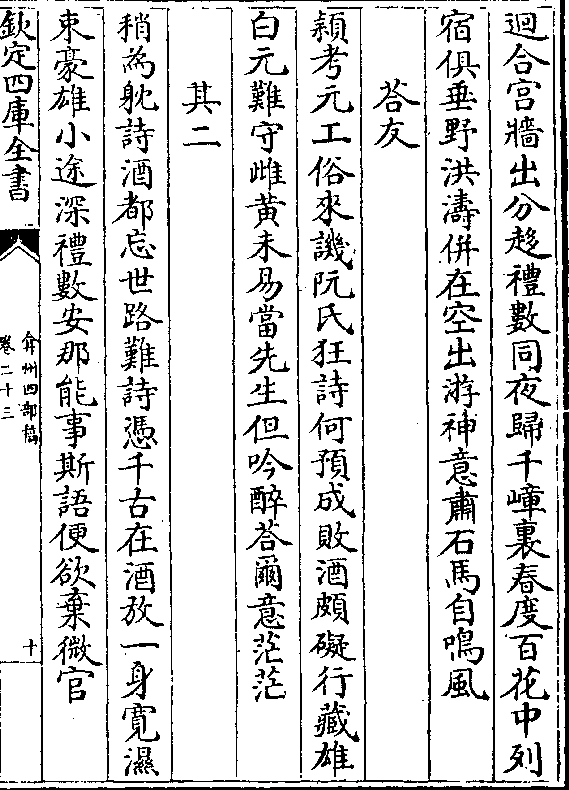 迥合宮牆出分趍禮數同夜歸千嶂裏春度百花中列
宿俱垂野洪濤併在空出游神意肅石馬自鳴風
荅友
穎考元工俗來譏阮氏狂詩何預成敗酒頗礙行藏雄
白元難守雌黄未易當先生但吟醉荅爾意茫茫
其二
稍為躭詩酒都忘世路難詩憑千古在酒放一身寛濕
束豪雄小途深禮數安那能事斯語便欲棄微官
欽定四庫全書
弇州四部稿
卷二十三
十